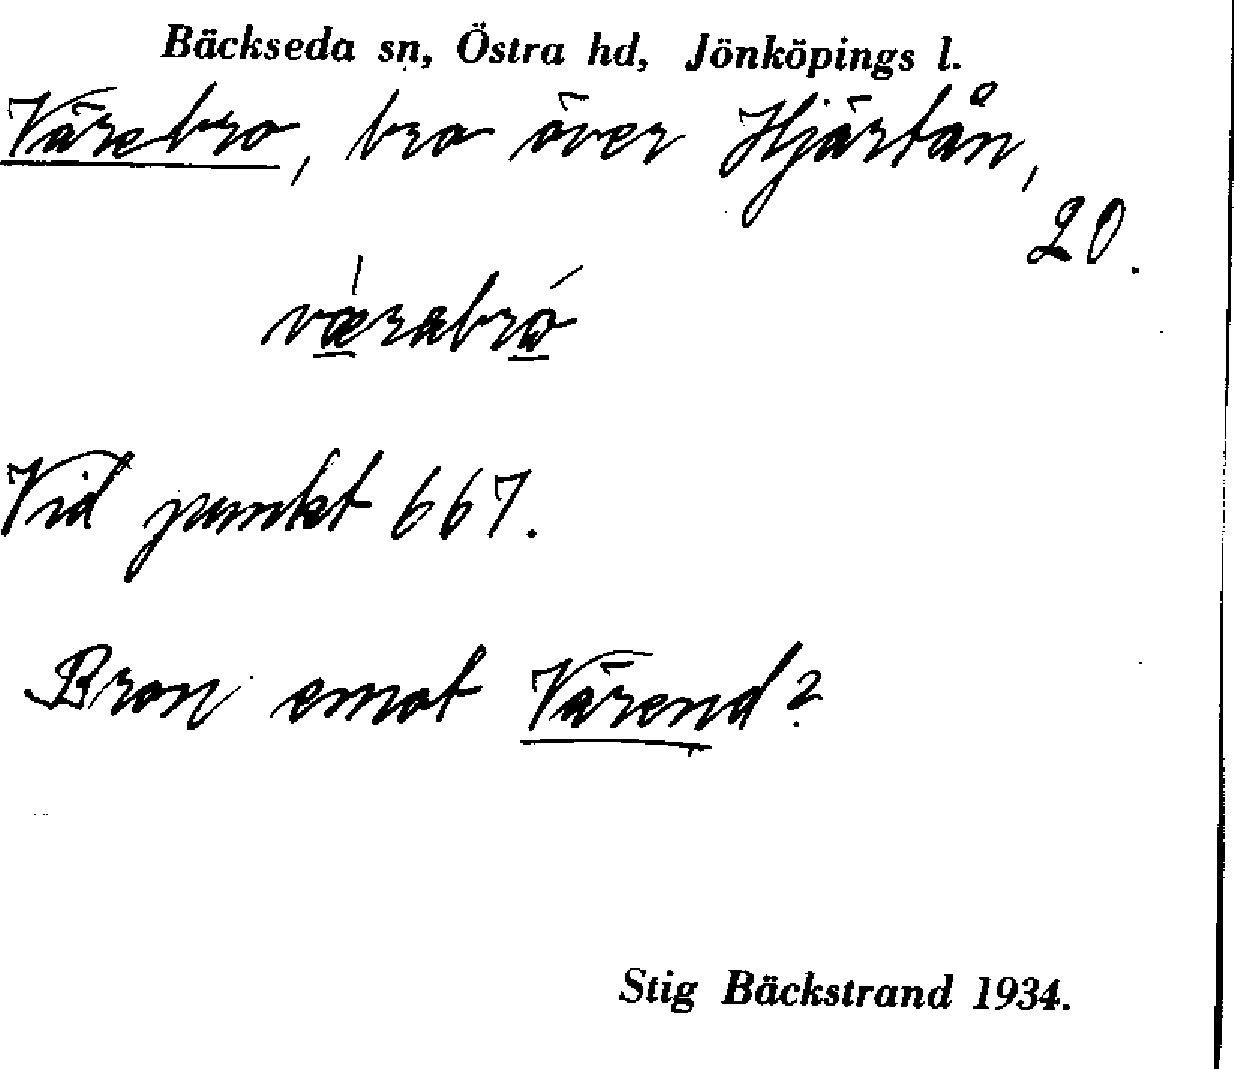 Bäckseda sn, Östra hd, Jönköpings l.
Värebro, bro över Hjärtån,
20.
værabro
Vid punkt 667.
Bron emot Värend?
Stig Bäckstrand 1934.